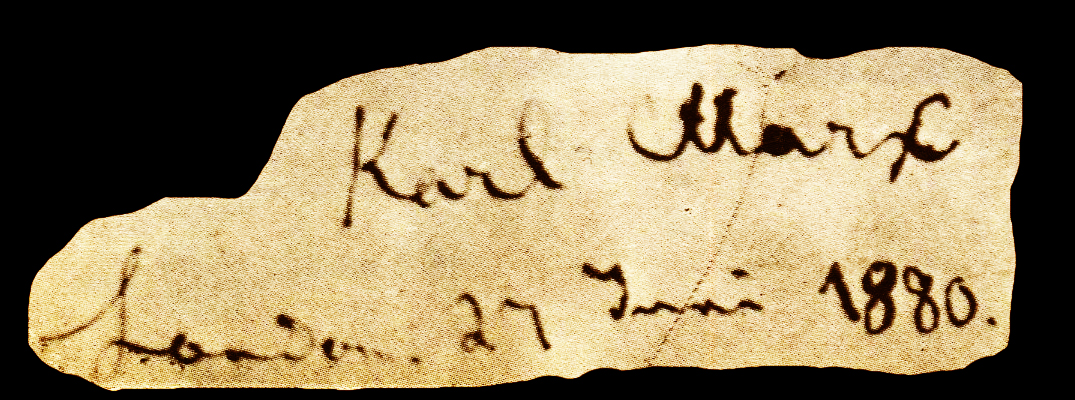 Karl Marx
London. 27 Juni 1880.